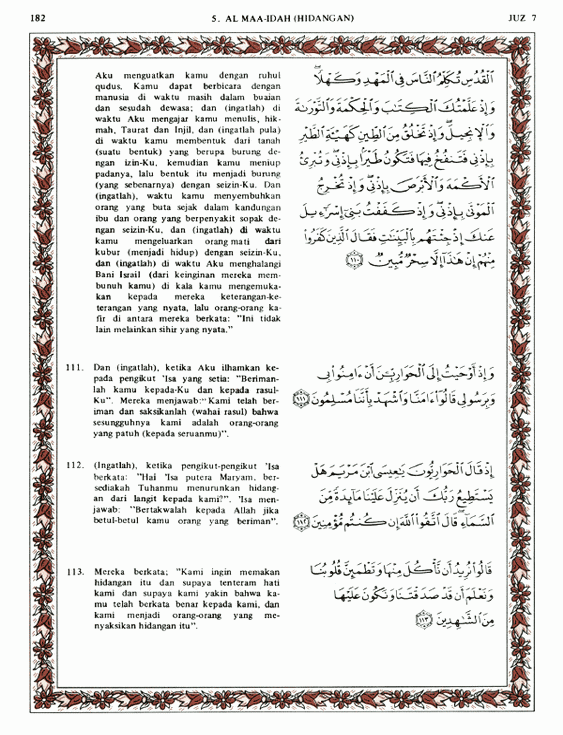 182
5. AL MAA-IDAH (HIDANGAN)
JUZ 7
Aku menguatkan kamu dengan ruhul
qudus. Kamu dapat berbicara dengan
manusia di waktu masih dalam buaian
dan sesudah dewasa; dan (ingatlah) di
waktu Aku mengajar kamu menulis, hik-
mah, Taurat dan Injil, dan (ingatlah pula)
di waktu kamu membentuk dari tanah
(suatu bentuk) yang berupa burung de-
ngan izin-Ku, kemudian kamu meniup
padanya, lalu bentuk itu menjadi burung
(yang sebenarnya) dengan seizin-Ku. Dan
(ingatlah), waktu kamu menyembuhkan
orang yang buta sejak dalam kandungan
ibu dan orang yang berpenyakit sopak de-
ngan seizin-Ku, dan (ingatlah) di waktu
kamu mengeluarkan orang mati dari
kubur (menjadi hidup) dengan seizin-Ku,
dan (ingatlah) di waktu Aku menghalangi
Bani Israil (dari keinginan mereka mem-
bunuh kamu) di kala kamu mengemuka-
kan kepada mereka keterangan-ke-
terangan yang nyata, lalu orang-orang ka-
fir di antara mereka berkata: "Ini tidak
lain melainkan sihir yang nyata."
ٱلْقُدُسِ تُكَلِّمُ ٱلنَّاسَ فِى ٱلْمَهْدِ وَكَهْلًا ۖ
وَإِذْ عَلَّمْتُكَ ٱلْكِتَٰبَ وَٱلْحِكْمَةَ وَٱلتَّوْرَىٰةَ
وَٱلْإِنجِيلَ ۖ وَإِذْ تَخْلُقُ مِنَ ٱلطِّينِ كَهَيْـَٔةِ ٱلطَّيْرِ
بِإِذْنِى فَتَنفُخُ فِيهَا فَتَكُونُ طَيْرًۢا بِإِذْنِى ۖ وَتُبْرِئُ
ٱلْأَكْمَهَ وَٱلْأَبْرَصَ بِإِذْنِى ۖ وَإِذْ تُخْرِجُ
ٱلْمَوْتَىٰ بِإِذْنِى ۖ وَإِذْ كَفَفْتُ بَنِىٓ إِسْرَٰٓءِيلَ
عَنكَ إِذْ جِئْتَهُم بِٱلْبَيِّنَٰتِ فَقَالَ ٱلَّذِينَ كَفَرُوا۟
مِنْهُمْ إِنْ هَٰذَآ إِلَّا سِحْرٌ مُّبِينٌ ﴿١١٠﴾
111. Dan (ingatlah), ketika Aku ilhamkan ke-
pada pengikut 'Isa yang setia: "Beriman-
lah kamu kepada-Ku dan kepada rasul-
Ku". Mereka menjawab:"Kami telah ber-
iman dan saksikanlah (wahai rasul) bahwa
sesungguhnya kami adalah orang-orang
yang patuh (kepada seruanmu)".
وَإِذْ أَوْحَيْتُ إِلَى ٱلْحَوَارِيِّـۧنَ أَنْ ءَامِنُوا۟ بِى
وَبِرَسُولِى قَالُوٓا۟ ءَامَنَّا وَٱشْهَدْ بِأَنَّنَا مُسْلِمُونَ ﴿١١١﴾
112. (Ingatlah), ketika pengikut-pengikut 'Isa
berkata: "Hai 'Isa putera Maryam, ber-
sediakah Tuhanmu menurunkan hidang-
an dari langit kepada kami?". 'Isa men-
jawab: "Bertakwalah kepada Allah jika
betul-betul kamu orang yang beriman".
إِذْ قَالَ ٱلْحَوَارِيُّونَ يَٰعِيسَى ٱبْنَ مَرْيَمَ هَلْ
يَسْتَطِيعُ رَبُّكَ أَن يُنَزِّلَ عَلَيْنَا مَآئِدَةً مِّنَ
ٱلسَّمَآءِ ۖ قَالَ ٱتَّقُوا۟ ٱللَّهَ إِن كُنتُم مُّؤْمِنِينَ ﴿١١٢﴾
113. Mereka berkata; "Kami ingin memakan
hidangan itu dan supaya tenteram hati
kami dan supaya kami yakin bahwa ka-
mu telah berkata benar kepada kami, dan
kami menjadi orang-orang yang me-
nyaksikan hidangan itu".
قَالُوا۟ نُرِيدُ أَن نَّأْكُلَ مِنْهَا وَتَطْمَئِنَّ قُلُوبُنَا
وَنَعْلَمَ أَن قَدْ صَدَقْتَنَا وَنَكُونَ عَلَيْهَا
مِنَ ٱلشَّٰهِدِينَ ﴿١١٣﴾